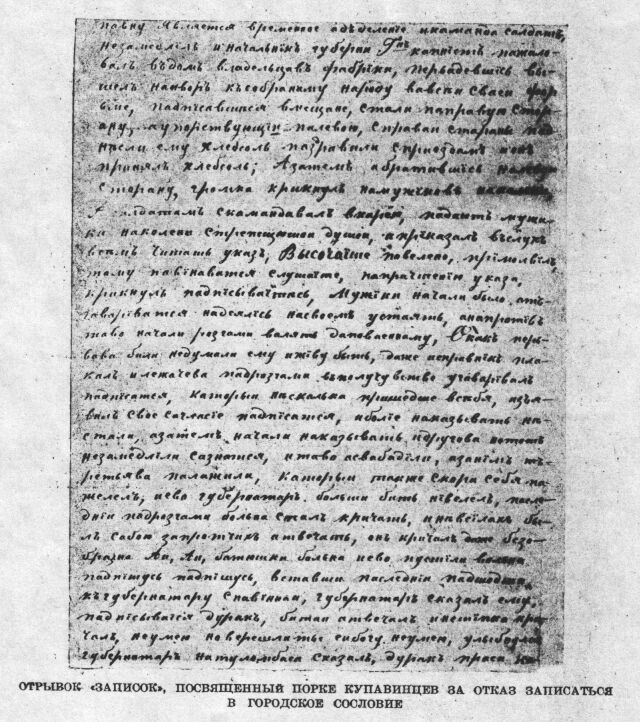 павну является временное атделение икаманда салдатъ,
незамедлил и начальник губерни Гнъ капнистъ пажало-
валъ въдом владельцав фабрики, перьадевшись вы-
шел надворъ къ собраному народу вавсеи сваеи фор
ме, падписавшияся вмещане, стали направую стор
ану, аупорствующии налевою, справаи стараны под
несли ему хлебсоль паздравили сприездам ионъ
принялъ хлебсоль; Азатемъ абратившись налевую
сторану, громка крикнулъ намужиковъ
салдатамъ скамандавал, падаитъ мужи-
ки наколени стрепещющеи душеи, априказалъ въслух
всемъ читать указ, Высочаише повелено, примолвилъ
таму павинаватся слушаите, папрачтении указа,
крикнулъ падписываитись, Мужики начали была атъ
гавариватся надеялись насвоемъ устаять, анапротивъ
таво начали розгами валять даповаенному, Окакъ перь-
вава били недумали ему иживу быть, даже исправникъ пла-
калъ илежачева падрозгами вполучувстве угаваривал
падписатся, каторыи насколька пришедше всебя, изъя-
вил свое сагласие падписатся, иболие наказывать не
стали, азатемъ начали наказывать идругова потомъ
незамедлили сазнатся, итаво асвабадили, азаним тъ
ретьява палажили, каторыи также скора себя по-
желелъ, иево губернатаръ больши бить невелелъ, после
днии падрозгами больна сталъ кричать, инавсилакъ бы-
лъ сабою запротчихъ атвечать, онъ кричалъ даже безо-
бразна Аи, Аи, батюшка больна иево пустили
падпишусь падпишусь, вставши последнии падшодши
къ губернатару спавиннаи, губернатаръ сказалъ ему,
падписываися дуракъ, битаи атвечал инештика кри-
чалъ, неумеи поверешпитье сибогу неумеи, улыбнулся
губернатаръ натуломбаса сказалъ, дуракъ праса
ОТРЫВОК «ЗАПИСОК», ПОСВЯЩЕННЫЙ ПОРКЕ КУПАВИНЦЕВ ЗА ОТКАЗ ЗАПИСАТЬСЯ
В ГОРОДСКОЕ СОСЛОВИЕ